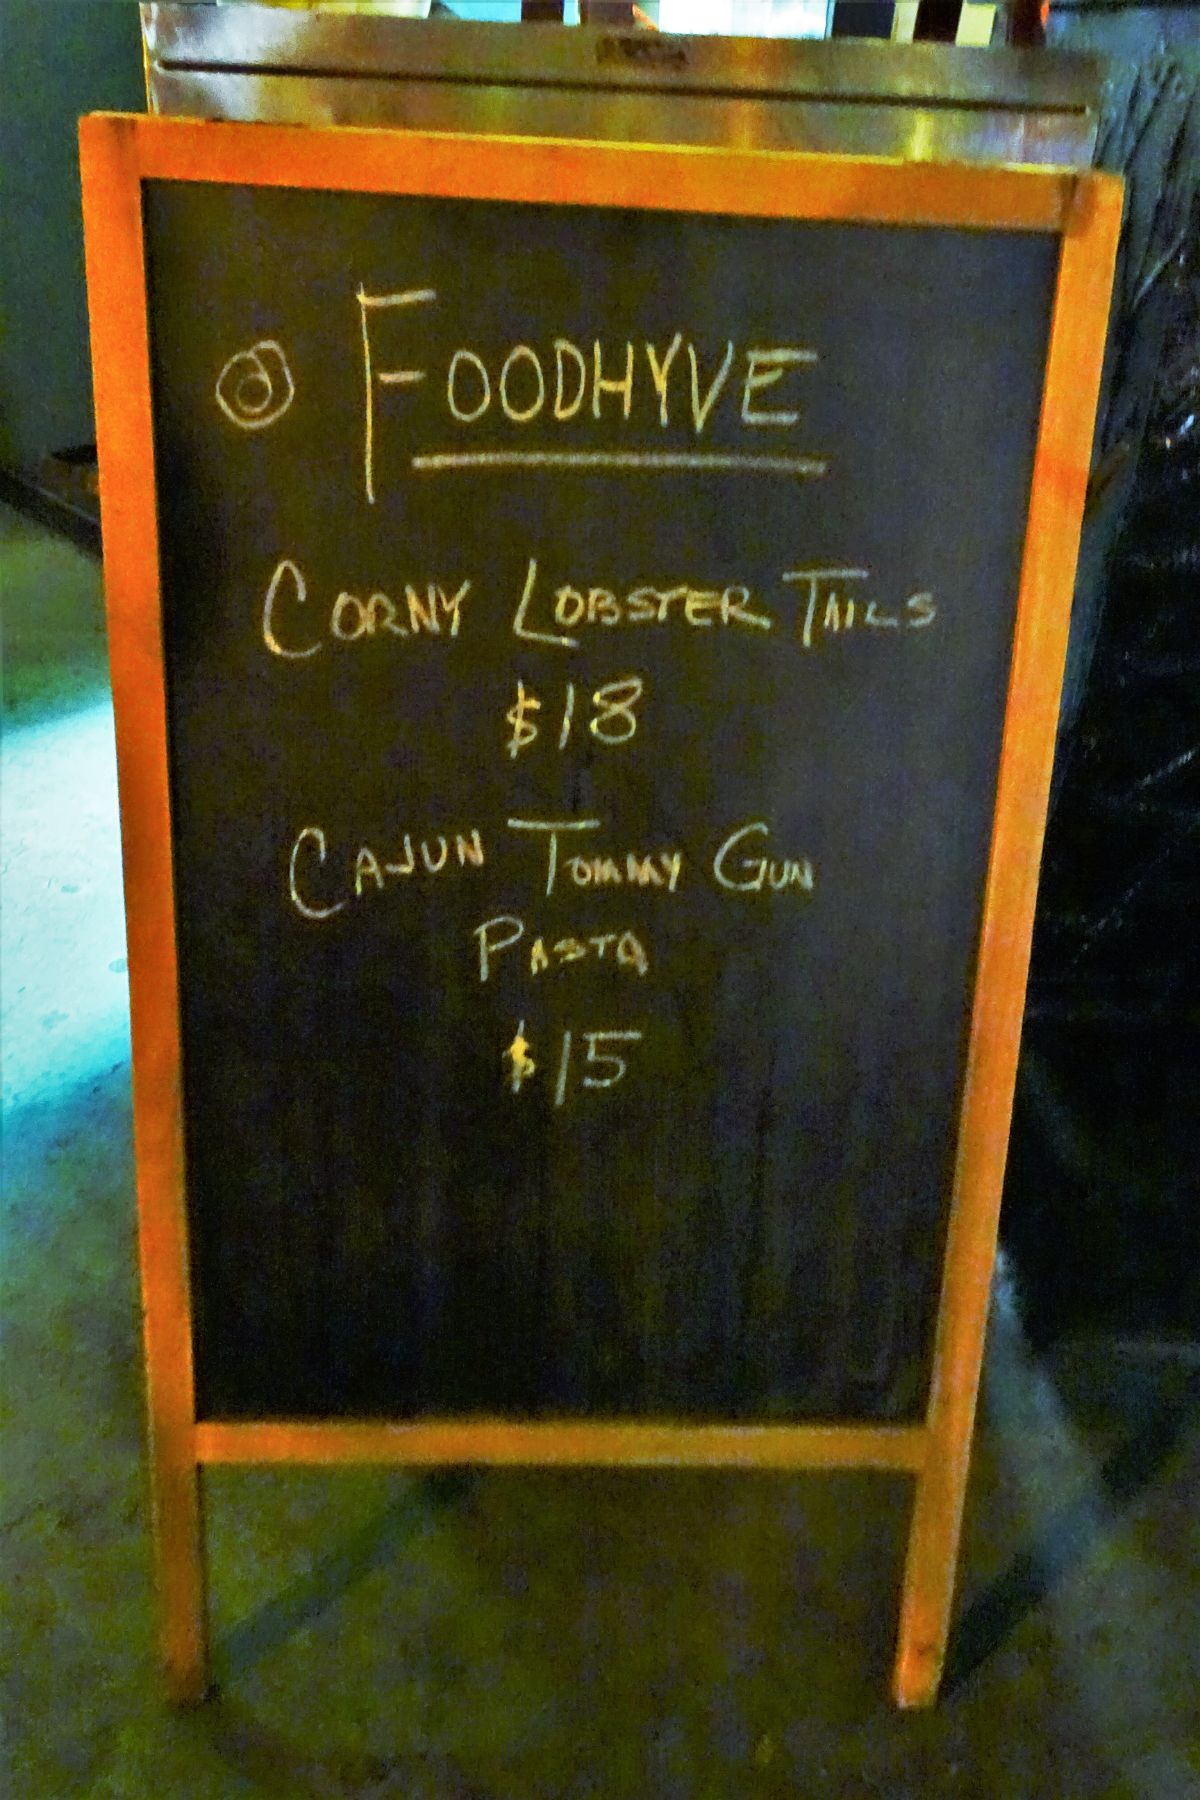 @ FOODHYVE
CORNY LOBSTER TAILS
$18
CAJUN TOMMY GUN
PASTA
$15